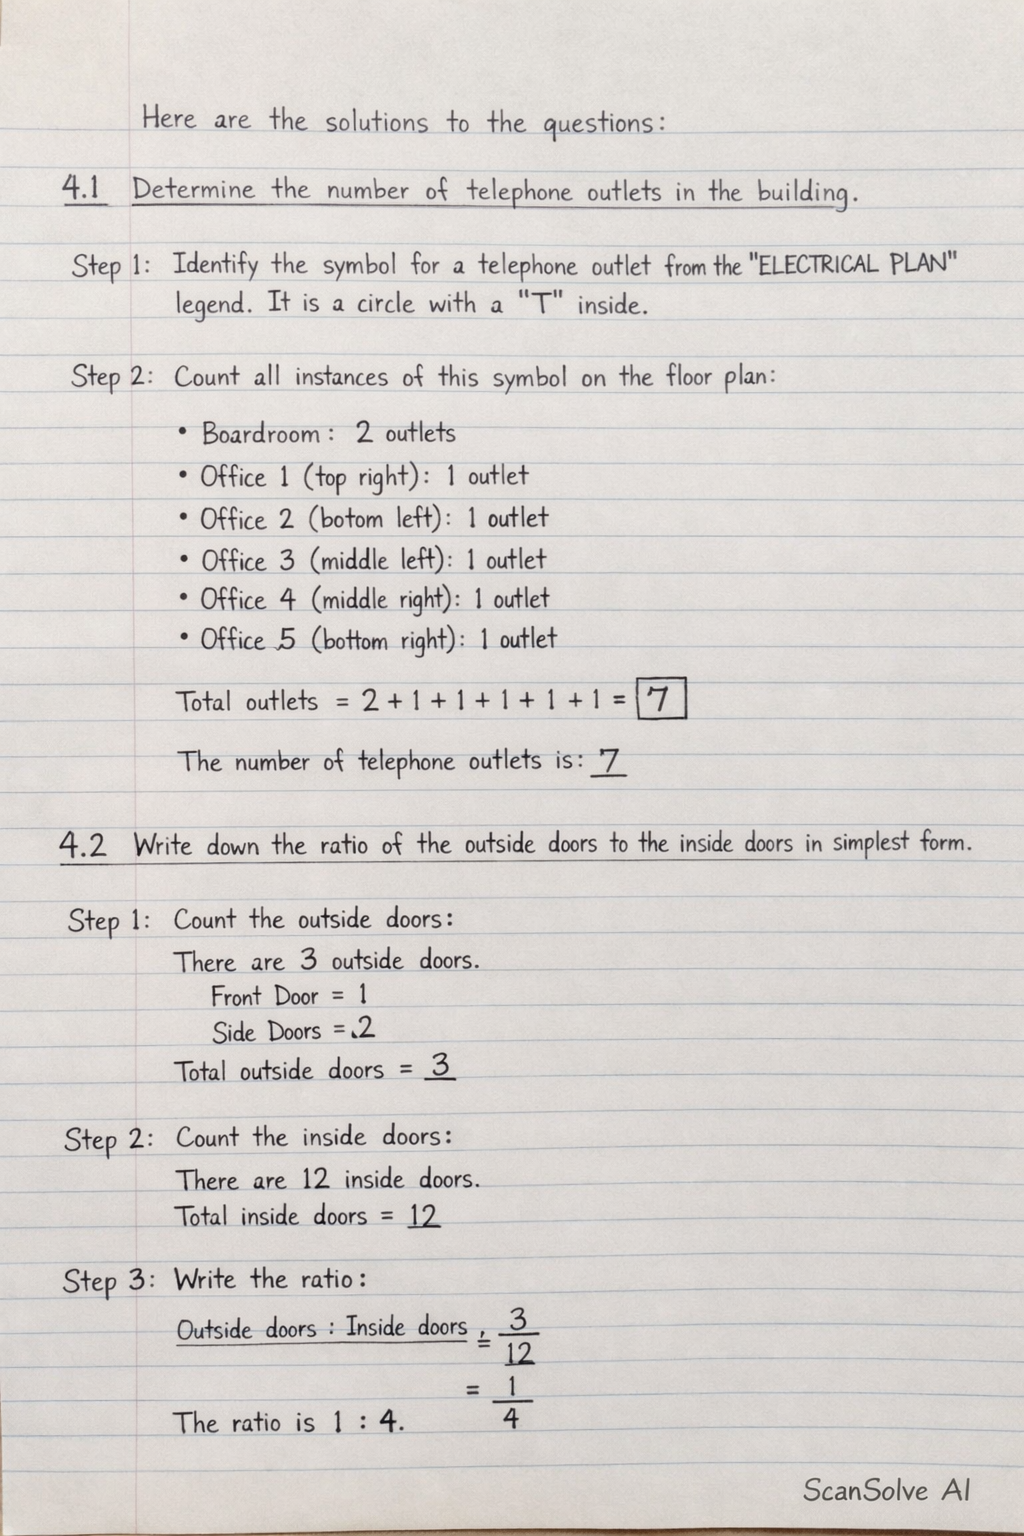 Here are the solutions to the questions:
4.1 Determine the number of telephone outlets in the building.
Step 1: Identify the symbol for a telephone outlet from the "ELECTRICAL PLAN"
legend. It is a circle with a "T" inside.
Step 2: Count all instances of this symbol on the floor plan:
• Boardroom: 2 outlets
• Office 1 (top right): 1 outlet
• Office 2 (botom left): 1 outlet
• Office 3 (middle left): 1 outlet
• Office 4 (middle right): 1 outlet
• Office 5 (bottom right): 1 outlet
Total outlets = 2 + 1 + 1 + 1 + 1 + 1 = 7
The number of telephone outlets is: 7
4.2 Write down the ratio of the outside doors to the inside doors in simplest form.
Step 1: Count the outside doors:
There are 3 outside doors.
Front Door = 1
Side Doors = 2
Total outside doors = 3
Step 2: Count the inside doors:
There are 12 inside doors.
Total inside doors = 12
Step 3: Write the ratio:
Outside doors : Inside doors = 3/12
= 1/4
The ratio is 1 : 4.
ScanSolve AI